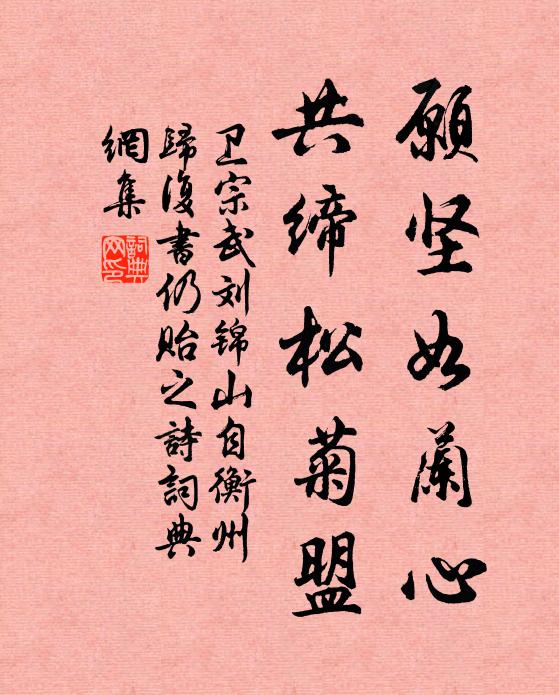 願坚如蘭心
共缔松菊盟
卫宗武刘锦山自衡州
歸復書仍贻之詩詞典
網集
詞典
网印